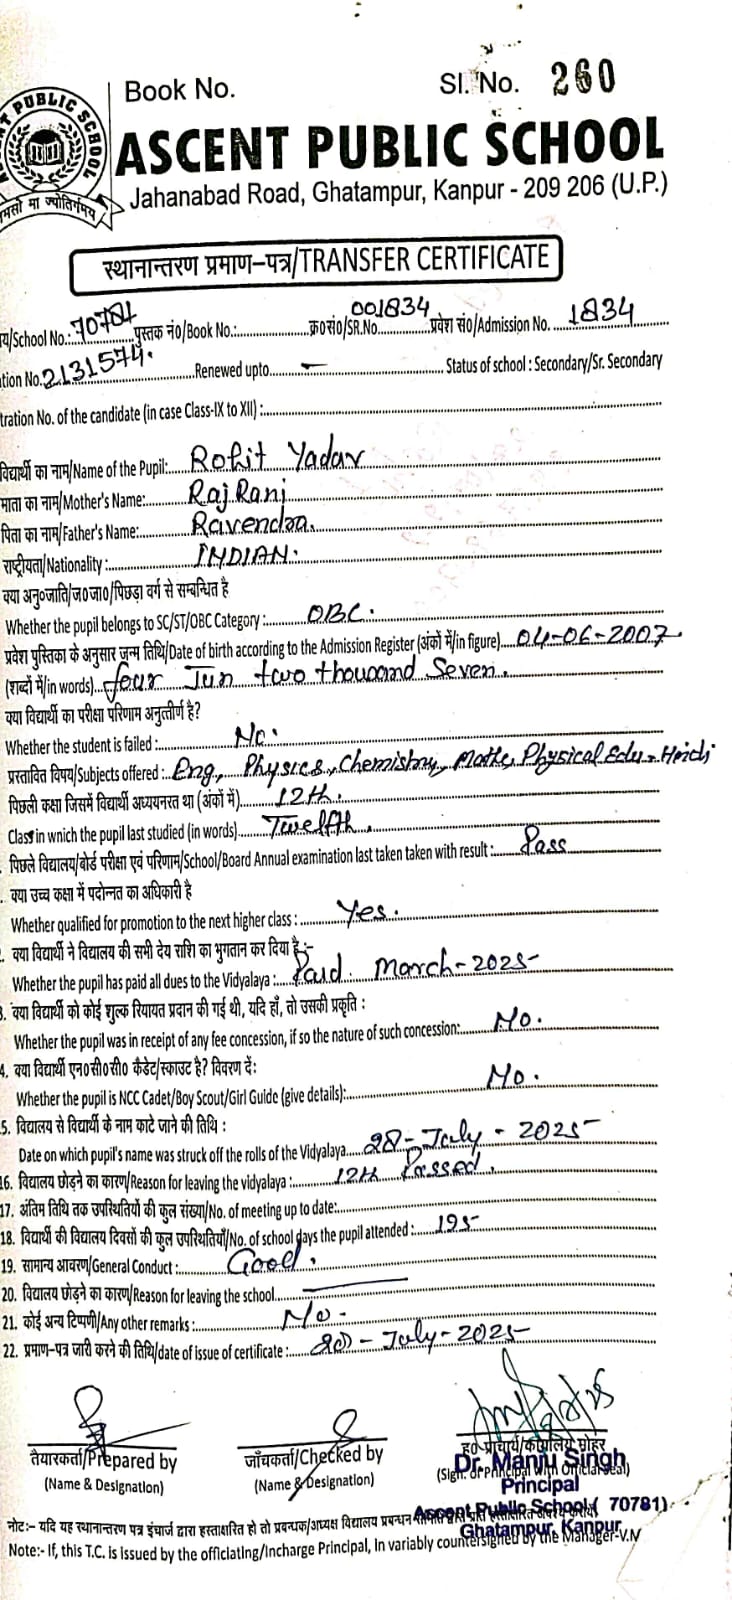 PUBLIC SCHOOL
Book No.
Sl. No. 260
ASCENT PUBLIC SCHOOL
Jahanabad Road, Ghatampur, Kanpur - 209 206 (U.P.)
मा ज्योतिर्गमय
स्थानान्तरण प्रमाण-पत्र/TRANSFER CERTIFICATE
/School No.: 70781 पुस्तक नं०/Book No.: क्र०सं०/SR.No. 001834 प्रवेश सं०/Admission No. 1834
tion No. 2131574. Renewed upto — Status of school : Secondary/Sr. Secondary
tration No. of the candidate (in case Class-IX to XII) :
विद्यार्थी का नाम/Name of the Pupil: Rohit Yadav
माता का नाम/Mother's Name: Raj Rani
पिता का नाम/Father's Name: Ravendra.
राष्ट्रीयता/Nationality : INDIAN.
क्या अनु०जाति/ज०जा०/पिछड़ा वर्ग से सम्बन्धित है
Whether the pupil belongs to SC/ST/OBC Category : OBC.
प्रवेश पुस्तिका के अनुसार जन्म तिथि/Date of birth according to the Admission Register (अंकों में/in figure) 04-06-2007.
(शब्दों में/in words) four Jun two thousand Seven.
क्या विद्यार्थी का परीक्षा परिणाम अनुत्तीर्ण है?
Whether the student is failed : No.
प्रस्तावित विषय/Subjects offered : Eng, Physics, Chemistry, Maths, Physical Edu - Hindi
पिछली कक्षा जिसमें विद्यार्थी अध्ययनरत था (अंकों में) 12th.
Class in wnich the pupil last studied (in words) Twelfth.
पिछले विद्यालय/बोर्ड परीक्षा एवं परिणाम/School/Board Annual examination last taken taken with result : Pass
क्या उच्च कक्षा में पदोन्नत का अधिकारी है
Whether qualified for promotion to the next higher class : Yes.
क्या विद्यार्थी ने विद्यालय की सभी देय राशि का भुगतान कर दिया है :-
Whether the pupil has paid all dues to the Vidyalaya : Paid. March-2025
3. क्या विद्यार्थी को कोई शुल्क रियायत प्रदान की गई थी, यदि हाँ, तो उसकी प्रकृति :
Whether the pupil was in receipt of any fee concession, if so the nature of such concession: No.
4. क्या विद्यार्थी एन०सी०सी० कैडेट/स्काउट है? विवरण दें:
Whether the pupil is NCC Cadet/Boy Scout/Girl Guide (give details): No.
5. विद्यालय से विद्यार्थी के नाम काटे जाने की तिथि :
Date on which pupil's name was struck off the rolls of the Vidyalaya 28-July-2025
16. विद्यालय छोड़ने का कारण/Reason for leaving the vidyalaya : 12th Passed.
17. अंतिम तिथि तक उपस्थितियों की कुल संख्या/No. of meeting up to date:
18. विद्यार्थी की विद्यालय दिवसों की कुल उपस्थितियाँ/No. of school days the pupil attended : 195
19. सामान्य आवरण/General Conduct : Good.
20. विद्यालय छोड़ने का कारण/Reason for leaving the school —
21. कोई अन्य टिप्पणी/Any other remarks : No.
22. प्रमाण-पत्र जारी करने की तिथि/date of issue of certificate : July-2025
तैयारकर्ता/Prepared by
(Name & Designation)
जाँचकर्ता/Checked by
(Name & Designation)
ह० प्राचार्य/कार्यालय मोहर
(Sign. of Principal with Official Seal)
Dr. Manju Singh
Principal
Ascent Public School ( 70781)
Ghatampur, Kanpur
नोट:- यदि यह स्थानान्तरण पत्र इंचार्ज द्वारा हस्ताक्षरित हो तो प्रबन्धक/अध्यक्ष विद्यालय प्रबन्धन
Note:- If, this T.C. is issued by the officiating/Incharge Principal, in variably countersigned by the Manager-V.M